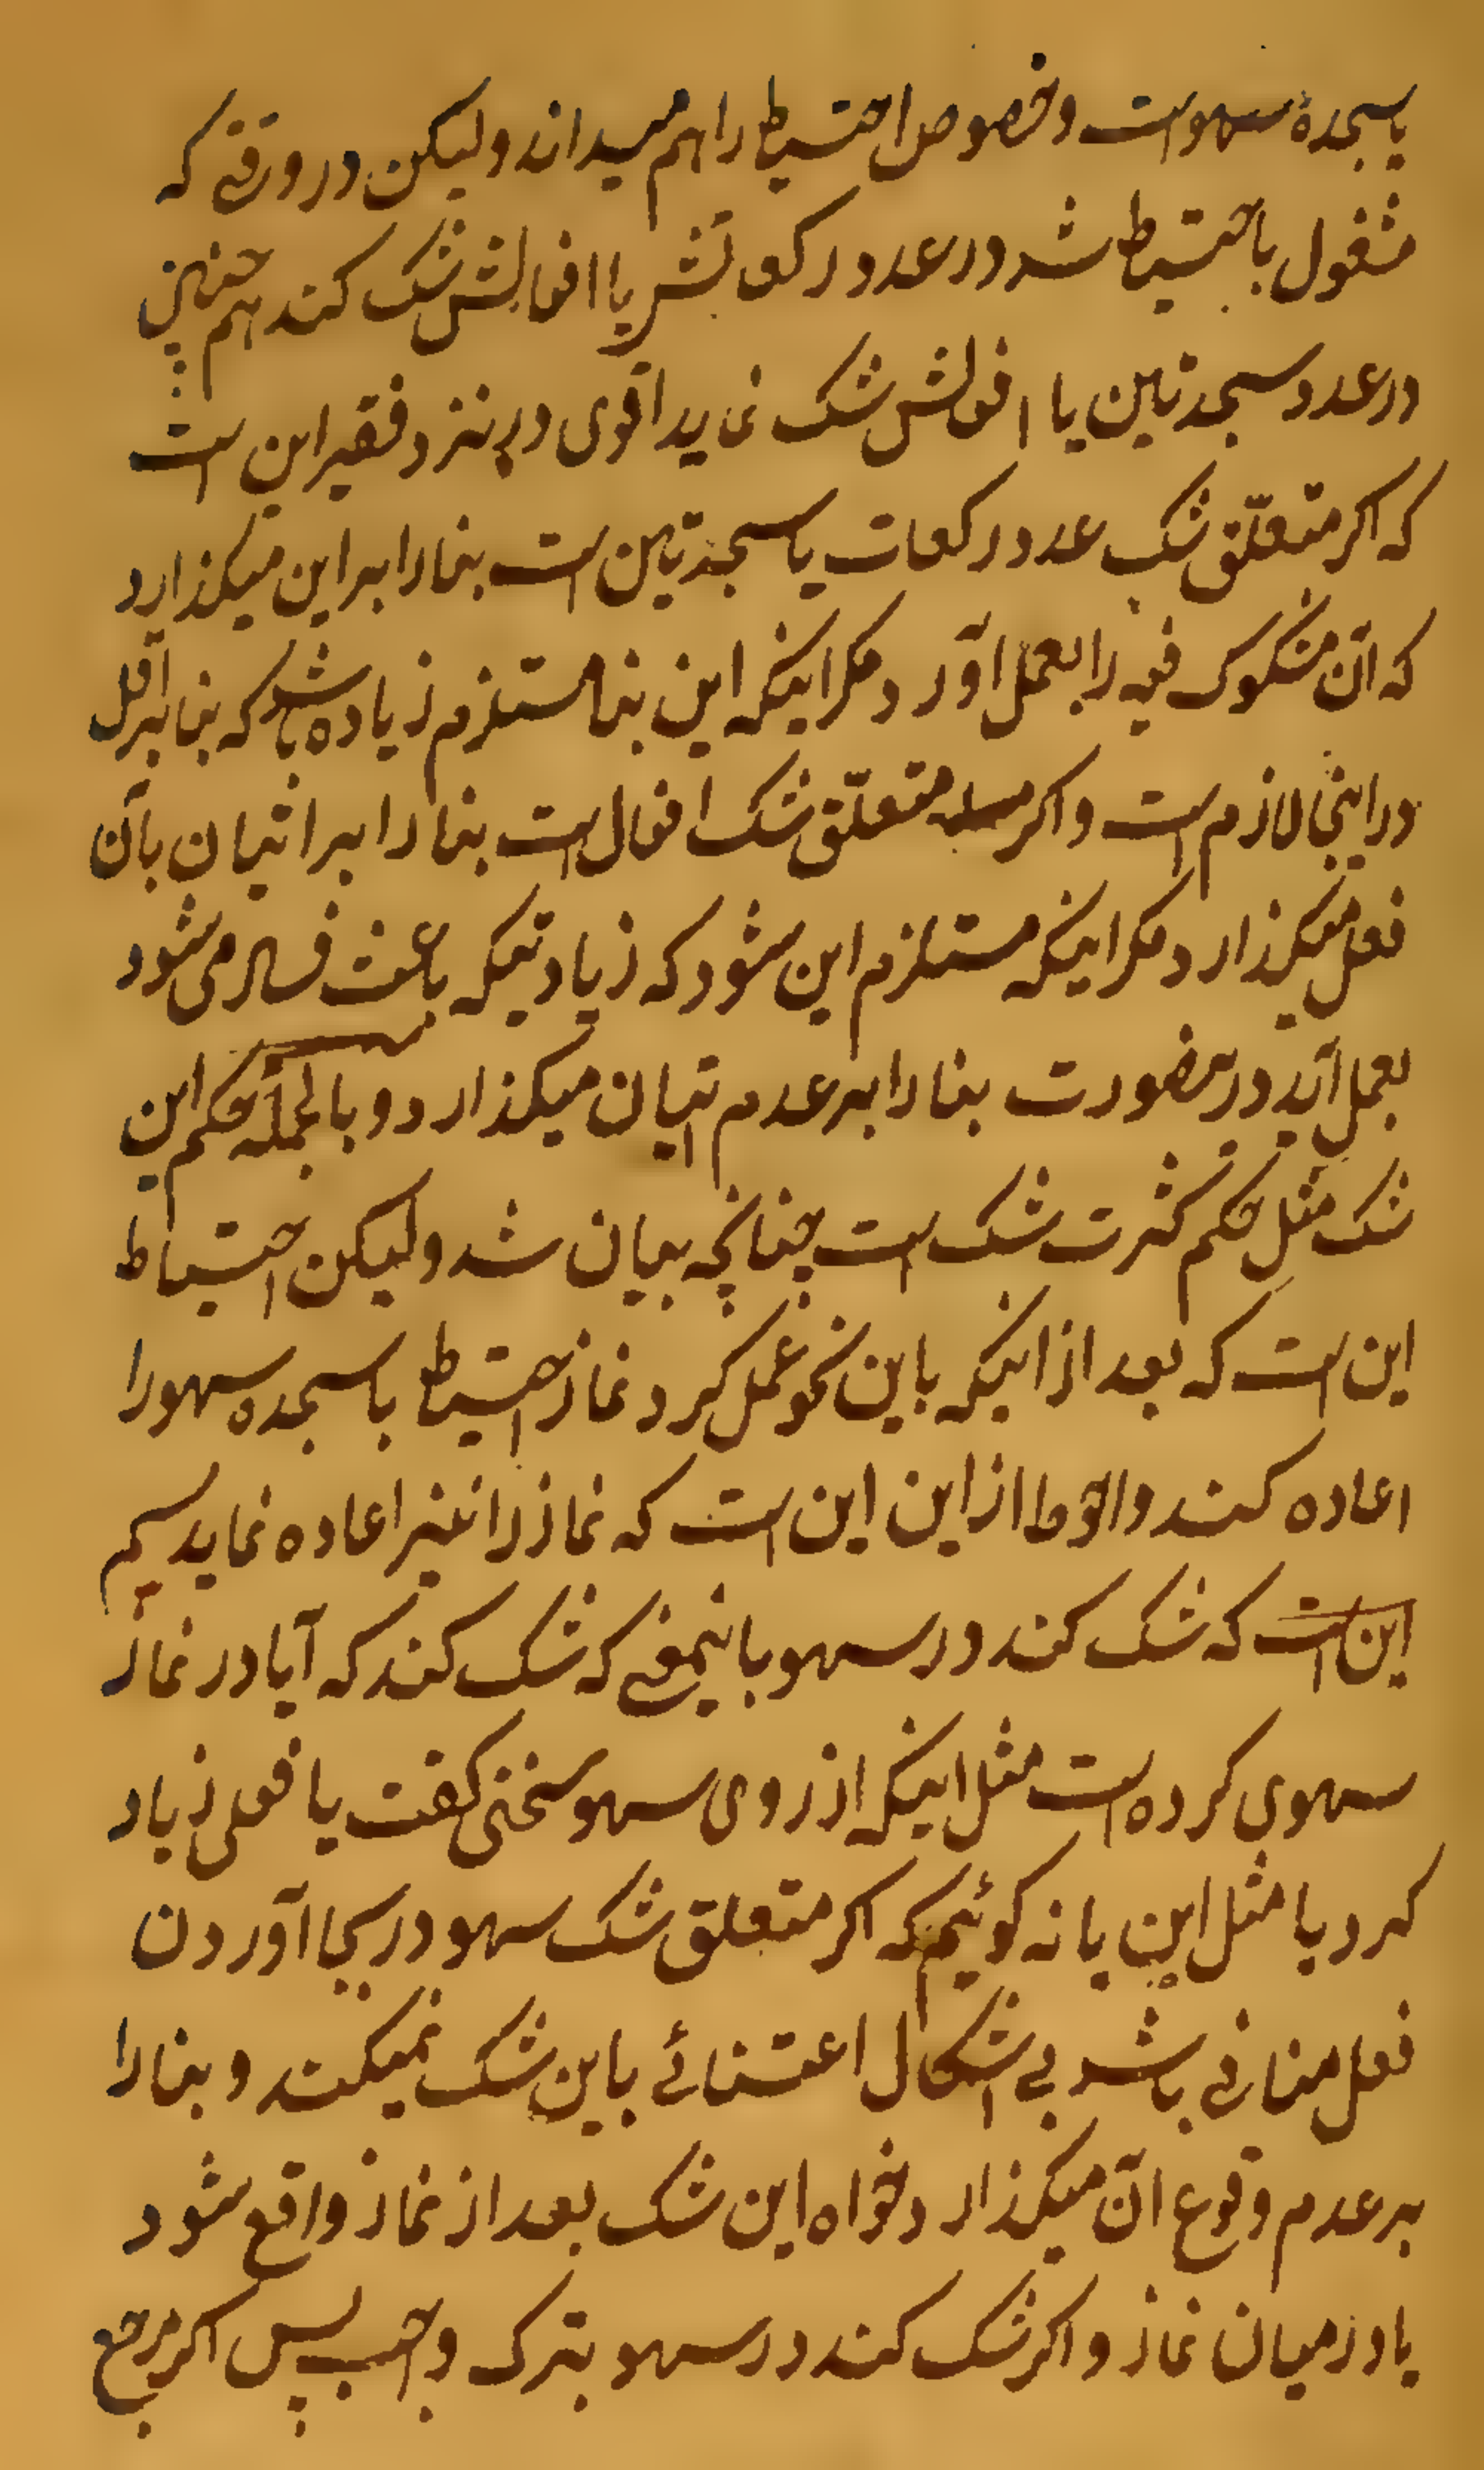 یا سجدۀ سهو است و خصوص احتیاط را هم میداند و لیکن در وقتی که
مشغول باحتیاط شد در عدد رکعاتش یا افعالش شک کند هم چنین
در عدد سجدتین یا افعالش شک نماید اقوی در نزد فقیر این است
که اکر متعلّق شک عدد رکعات یا سجدتین است بنا را بر این میکذارد
که آن مشکوک فیه را بعمل آورد مکر اینکه این بنا مستلزم زیاده باشد که بنا بر اقل
در اینجا لازم است و اکر متعلّق شک افعال است بنا را بر اتیان بآن
فعل میکذارد مکر اینکه مستلزم این شود که زیادتیکه باعث فساد می شود
بعمل آید در نصورت بنا را بر عدم اتیان میکذارد و بالجمله حکم این
شک مثل حکم کثرت شک است چنانچه بیان شد و لیکن احتیاط
این است که بعد از اینکه باین نحو عمل کرد نماز احتیاط یا سجده سهو را
اعاده کند و احوط از این این است که نماز را نیز اعاده نماید سیم
این است که شک کند در سهو باینمعنی که شک کند که آیا در نماز
سهوی کرده است مثل اینکه از روی سهو سخنی کفت یا فعلی زیاد
کرد یا مثل این یا نه کوئیم که اکر متعلق شک سهو در بجا آوردن
فعل منافی باشد بی اشکال اعتنائی باین شک نمیکند و بنا را
بر عدم وقوع آن میکذارد خواه این شک بعد از نماز واقع شود
یا در میان نماز و اکر شک کند در سهو بترک واجب پس اکر مرجع